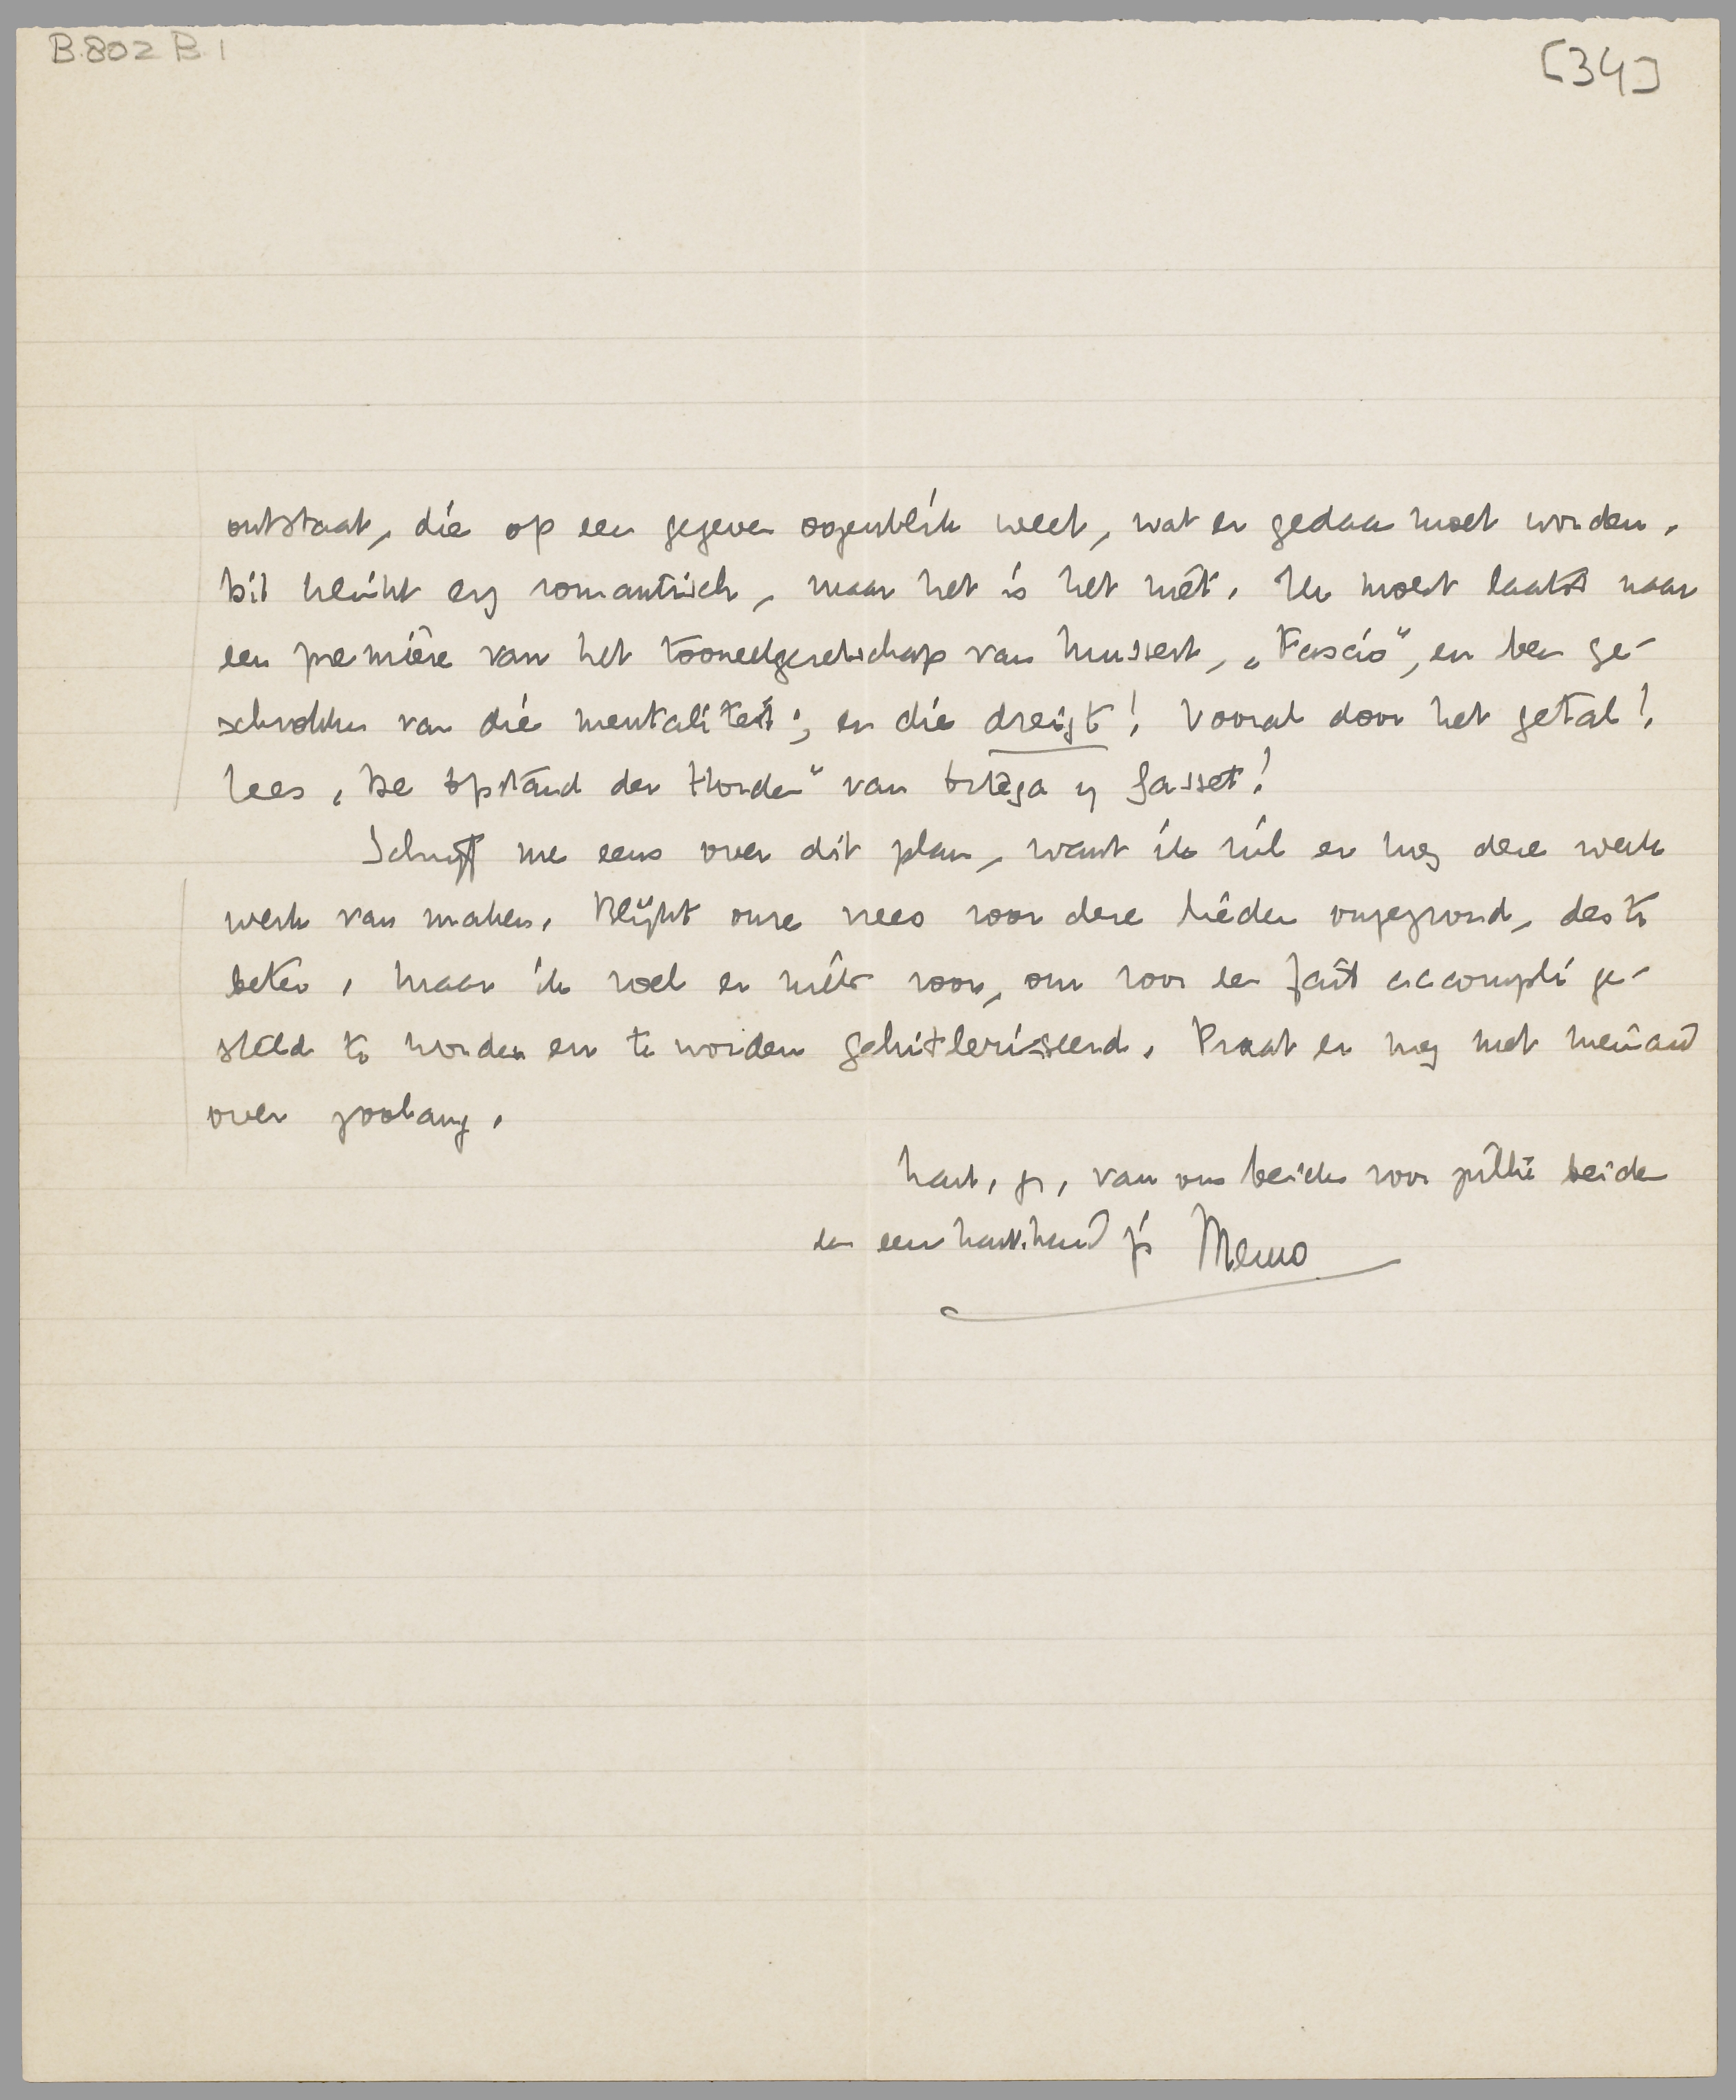 B.802 B.1
[34]
ontstaat, die op een gegeven oogenblik weet, wat er gedaan moet worden.
Dit klinkt erg romantisch, maar het is het niet. Ik moest laatst naar
een première van het tooneelgezelschap van Mussert, „Fascio”, en ben ge-
schrokken van die mentaliteit; en die dreigt! Vooral door het getal!
Lees „De Opstand der Horden” van Ortega y Gasset!
Schrijf me eens over dit plan, want ik wil er nog deze week
werk van maken. Blijkt onze vrees voor deze lieden ongegrond, des te
beter, maar ik voel er niets voor, om voor een fait accompli ge-
steld te worden en te worden gehitleriseerd. Praat er nog met niemand
over zoolang.
Hart. gr. van ons beiden voor jullie beiden
en een hart. hand js Menno